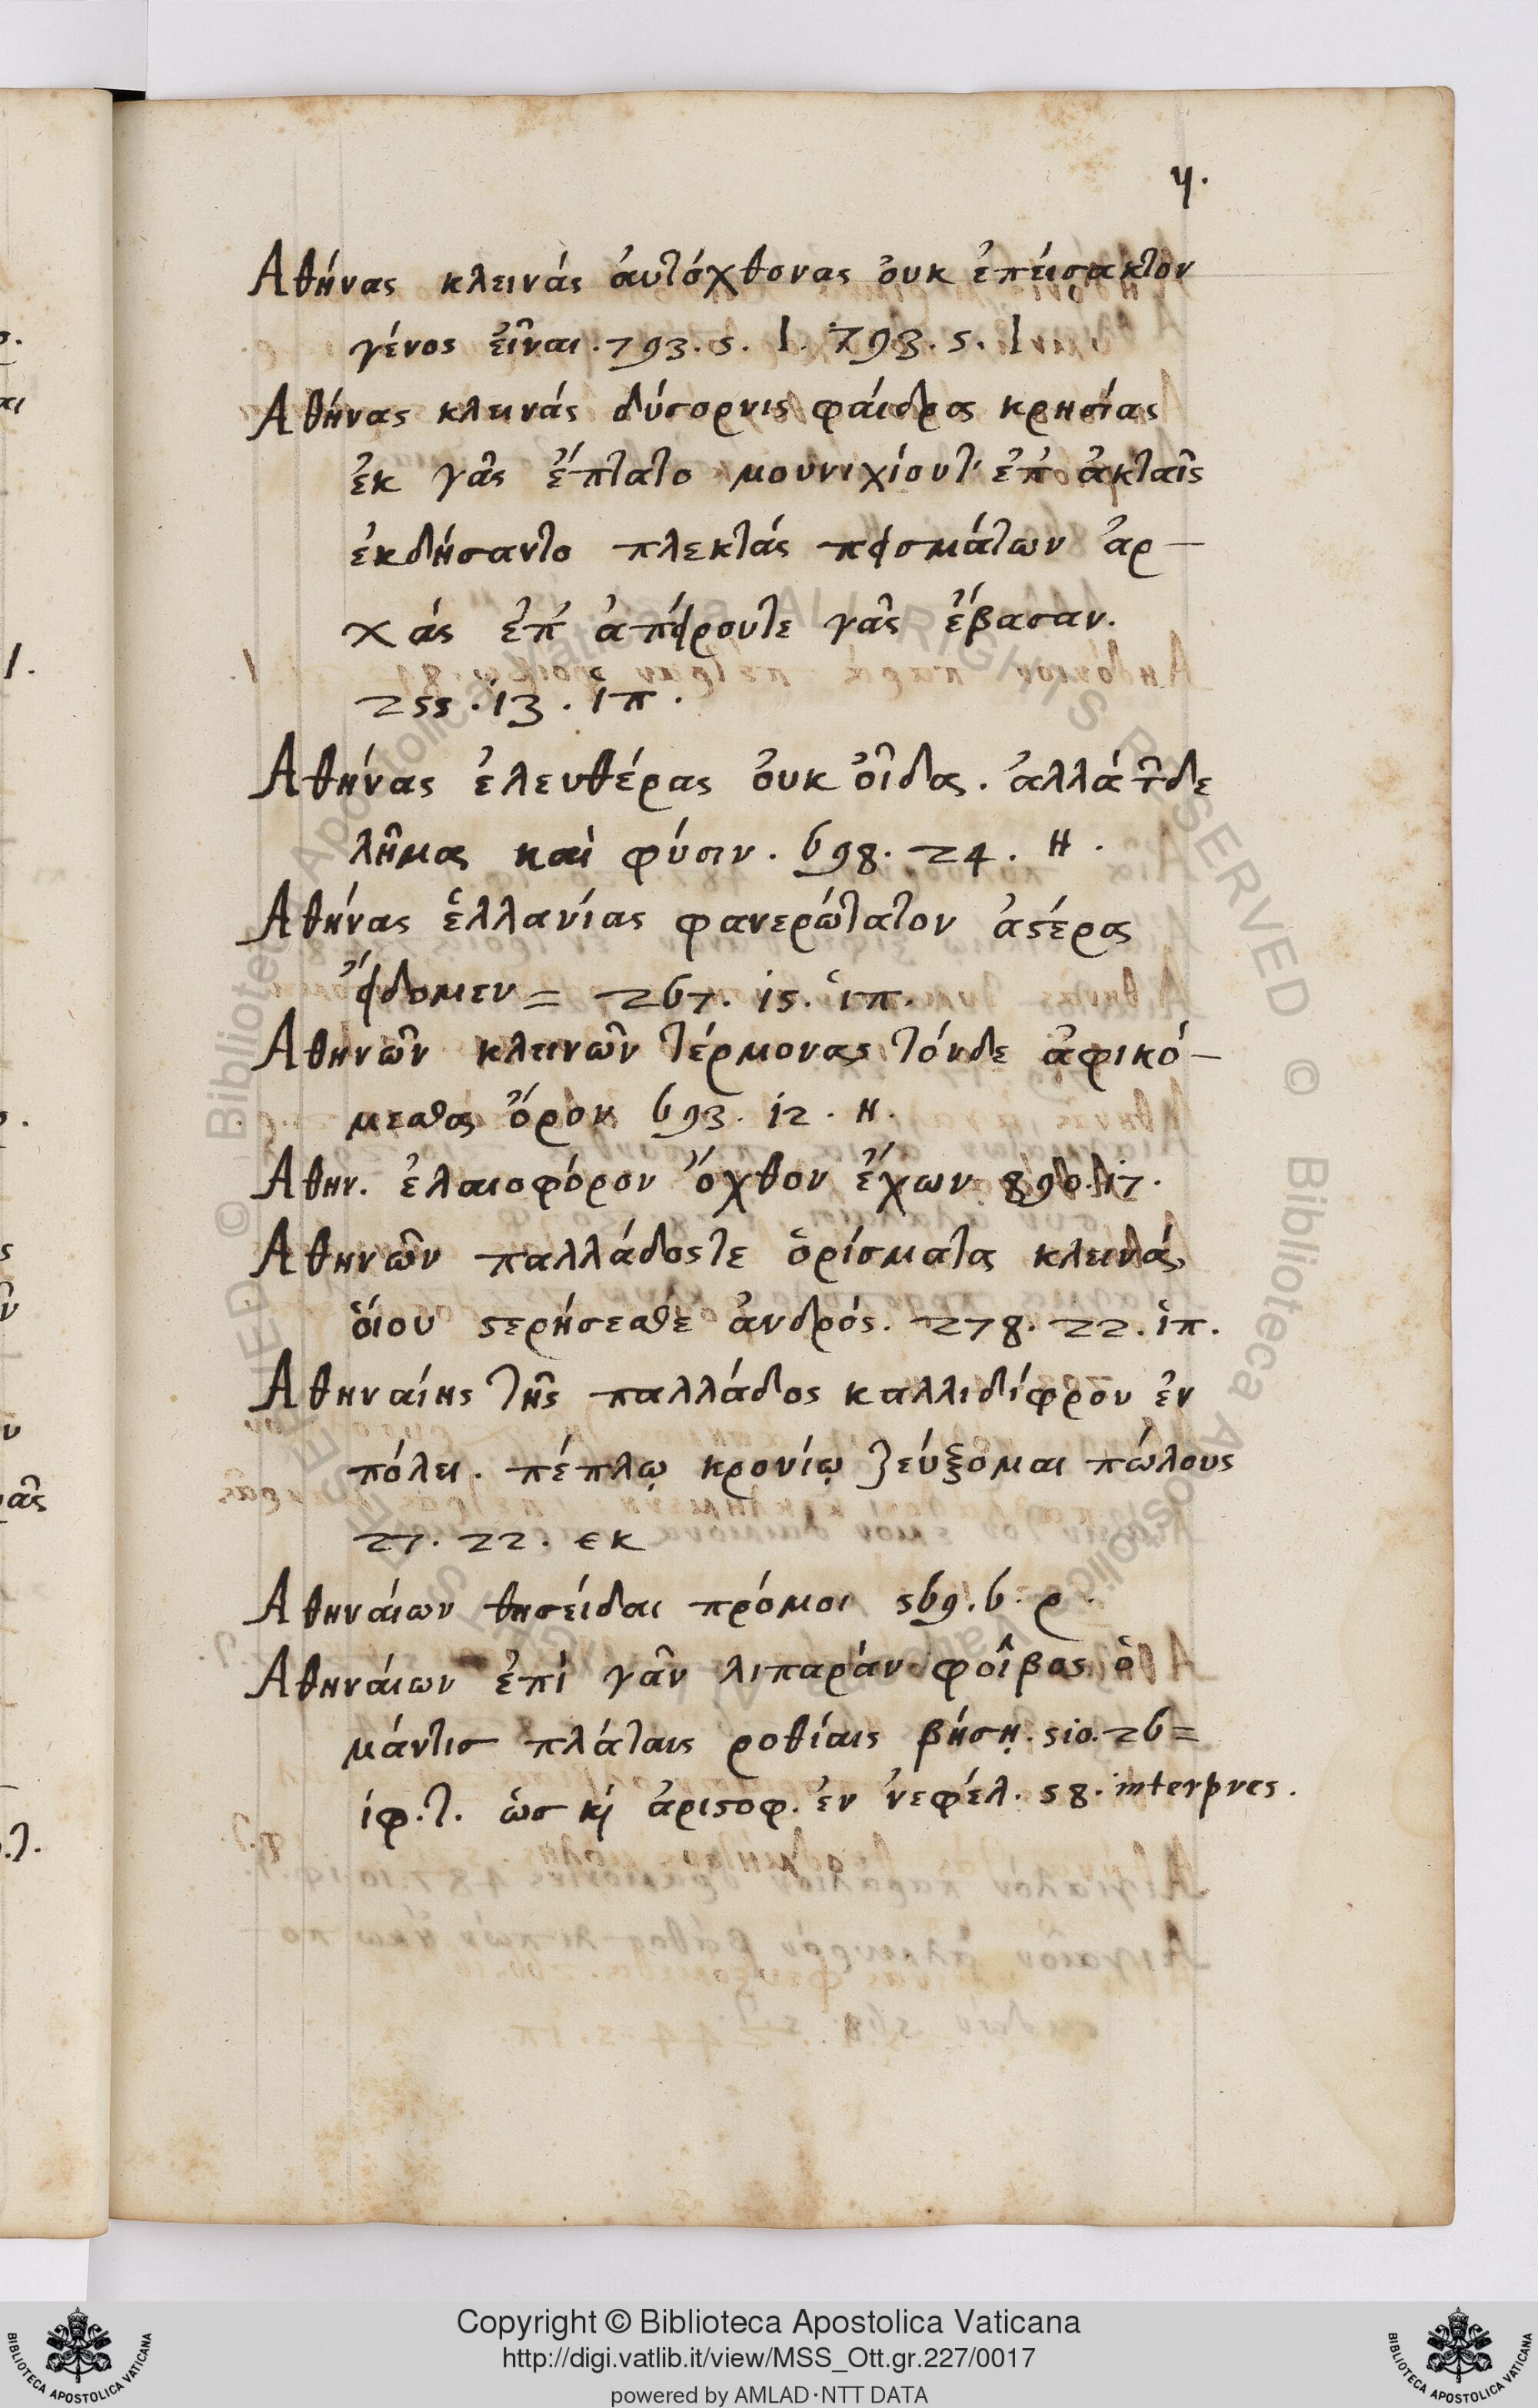 4.
Ἀθήνας κλεινάς ἀυτόχθονας ὀυκ ἐπείσακτον
γένος εἶναι. 793. 5. Ι. 793. 5. Ι
Ἀθήνας κλεινάς δύσορνις φάιδρα κρησίας
ἐκ γᾶς ἔπτατο μουνιχίουτ' ἐπ' ἀκταῖς
ἐκδήσαντο πλεκτάς πεισμάτων ἀρ-
χάς ἐπ' ἀπείρουτε γᾶς ἔβασαν.
255. 13. ἱπ.
Ἀθήνας ἐλευθέρας ὀυκ οἶδα. ἀλλά τῶδε
λῆμα καὶ φύσιν. 698. 24. Η.
Ἀθήνας ἑλλανίας φανερώτατον ἀστέρα
εἴδομεν = 267. 15. ἱπ.
Ἀθηνῶν κλεινῶν τέρμονας τόνδε ἀφικό-
μεσθα ὅρον 693. 12. Η.
Ἀθην. ἐλαιοφόρον ὄχθον ἔχων 890. 17.
Ἀθηνῶν παλλάδοςτε ὁρίσματα κλεινά,
ὅιου στερήσεσθε ἀνδρός. 278. 22. ἱπ.
Ἀθηναίης τῆς παλλάδος καλλιδίφρου ἐν
πόλει. πέπλῳ κρονίῳ ζεύξομαι πώλους
27. 22. εκ
Ἀθηνάιων θησείδαι πρόμοι 569. 6. ρ.
Ἀθηνάιων ἐπί γᾶν λιπαράν φοῖβος ὁ
μάντισ πλάταις ροθίαις βήσῃ. 510. 26 =
ἰφ. τ. ὡσ κὴ ἀριστοφ. ἐν νεφέλ. 58. interpres.
Copyright © Biblioteca Apostolica Vaticana
http://digi.vatlib.it/view/MSS_Ott.gr.227/0017
powered by AMLAD·NTT DATA